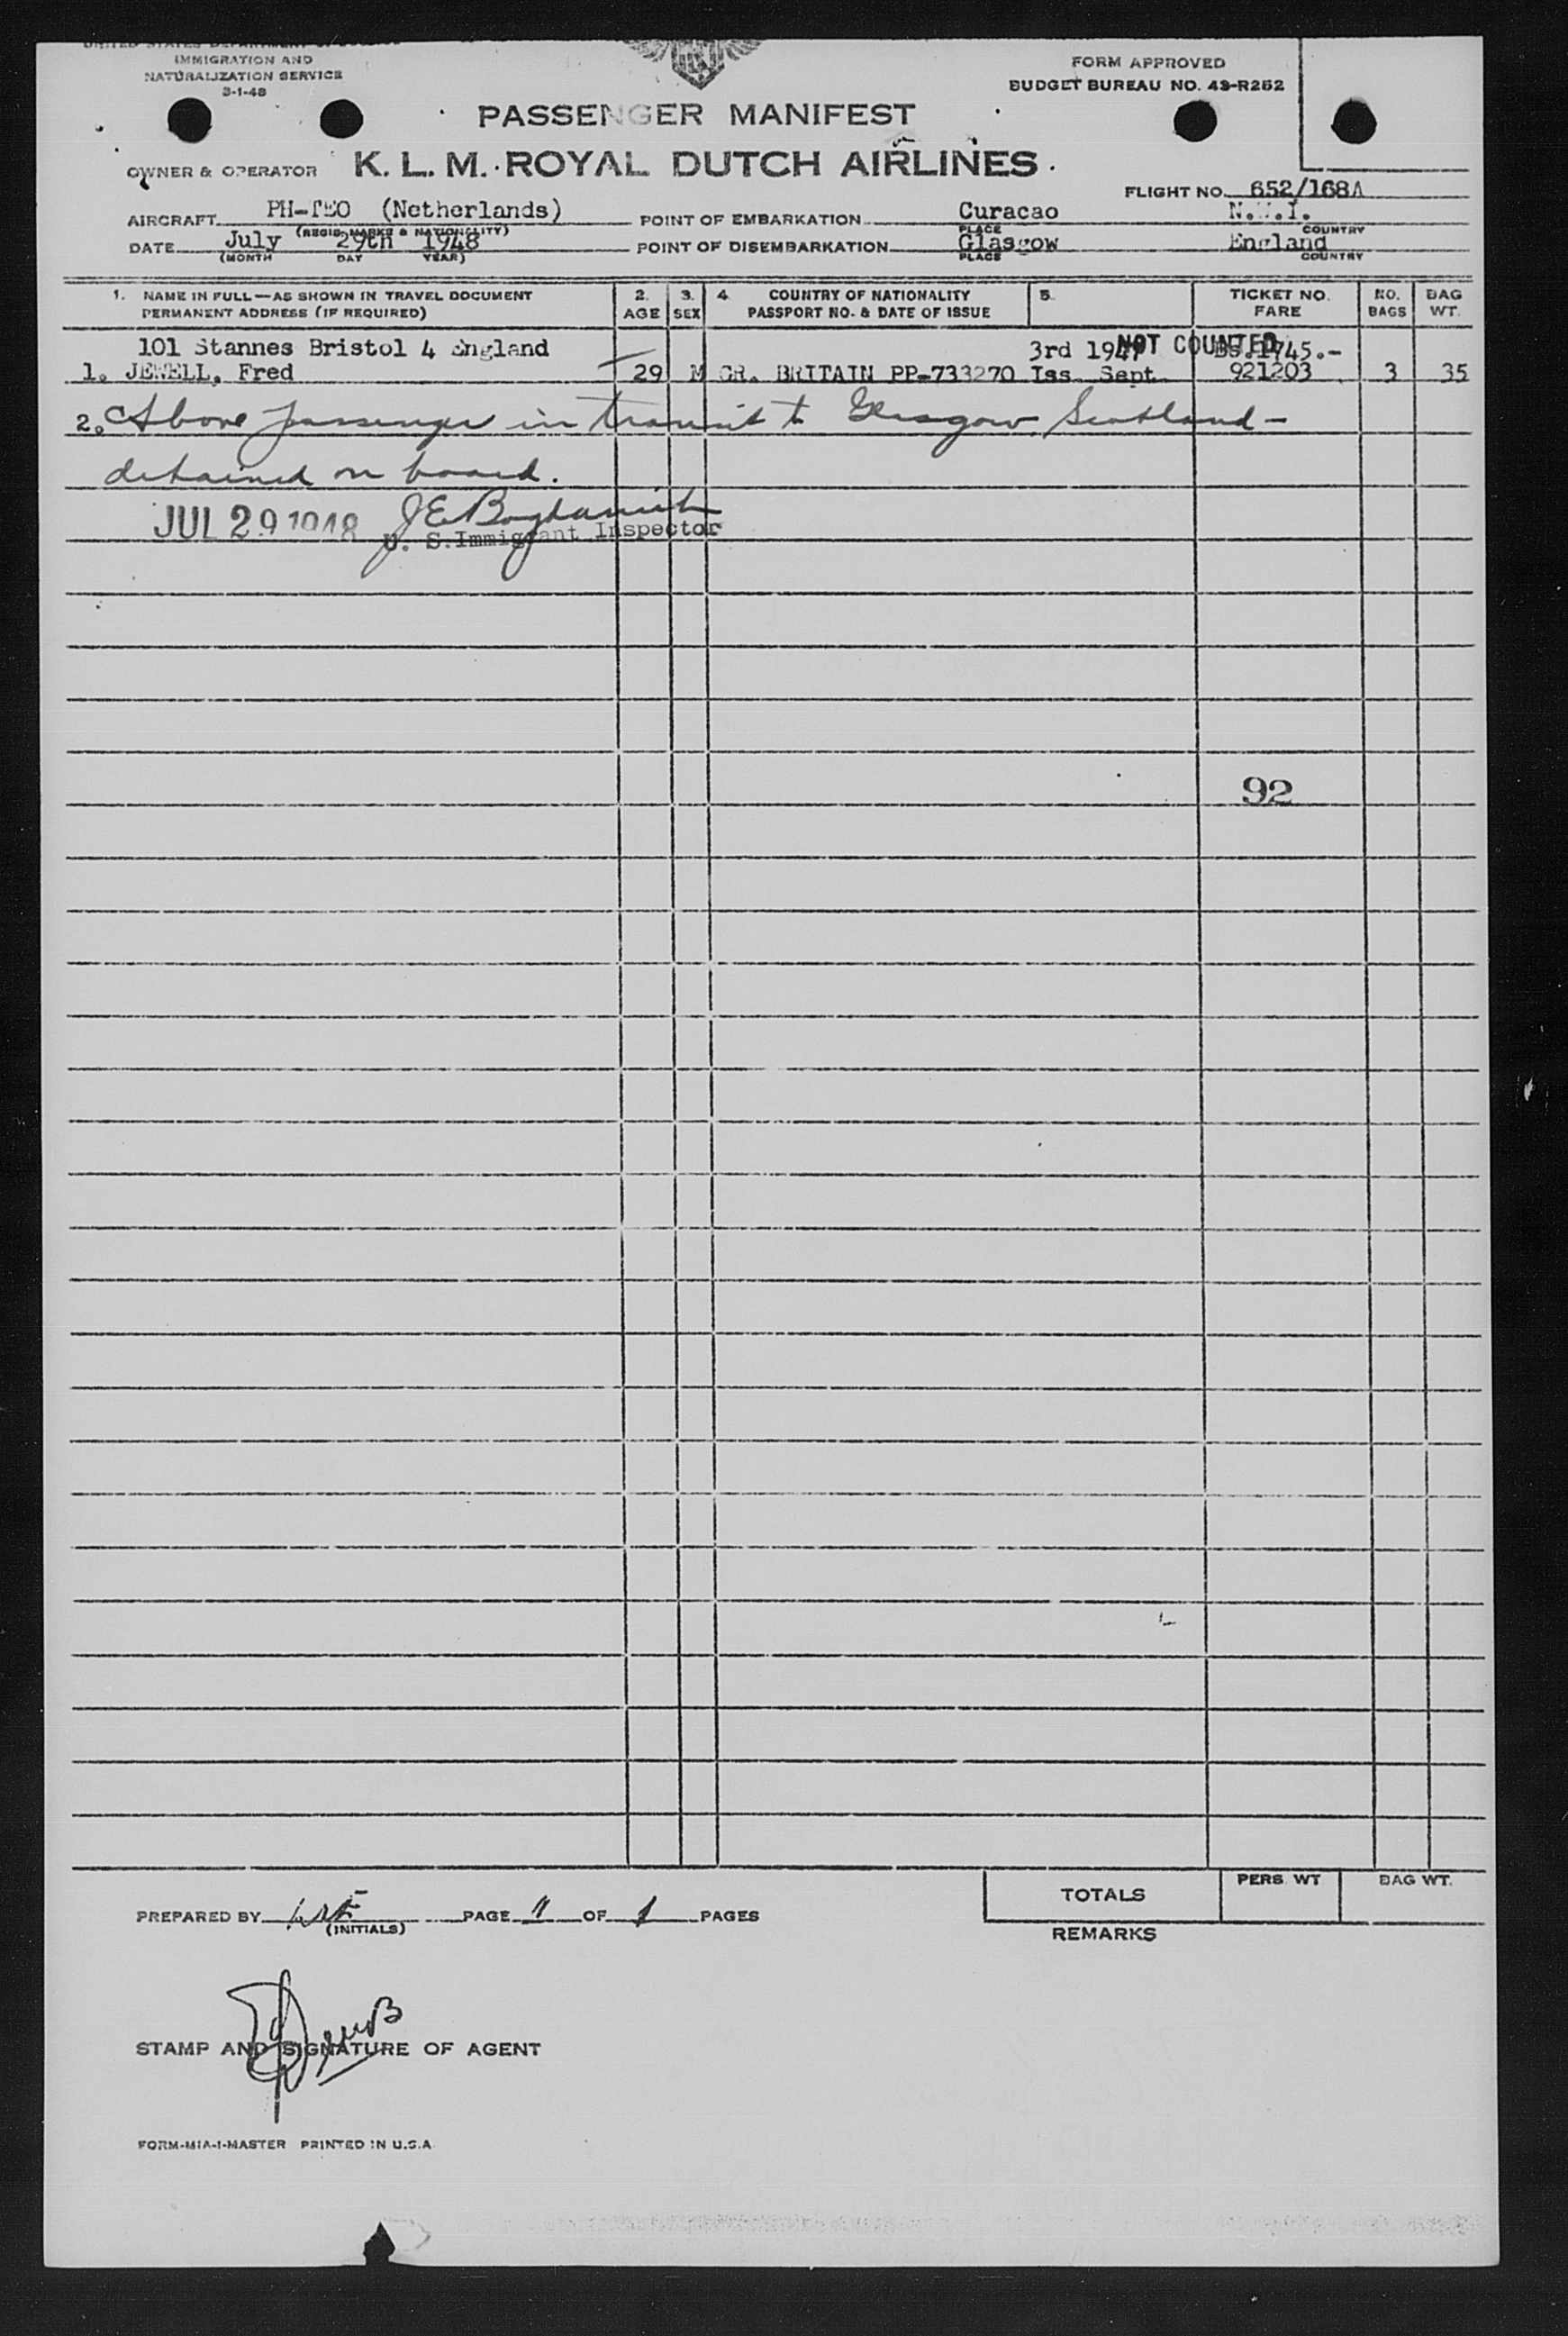 UNITED STATES DEPARTMENT OF JUSTICE
IMMIGRATION AND
NATURALIZATION SERVICE
3-1-48
FORM APPROVED
BUDGET BUREAU NO. 43-R252
PASSENGER MANIFEST
OWNER & OPERATOR K. L. M. ROYAL DUTCH AIRLINES.
FLIGHT NO. 652/168A
AIRCRAFT (Netherlands) POINT OF EMBARKATION Curacao
(REGIS. MARKS & NATIONALITY) PLACE COUNTRY
DATE July 29th 1948 POINT OF DISEMBARKATION Glasgow England
(MONTH DAY YEAR) PLACE COUNTRY
1. NAME IN FULL—AS SHOWN IN TRAVEL DOCUMENT 2. 3. 4 COUNTRY OF NATIONALITY 5. TICKET NO. NO. BAG
PERMANENT ADDRESS (IF REQUIRED) AGE SEX PASSPORT NO. & DATE OF ISSUE FARE BAGS WT.
101 Stannes Bristol 4 England 3rd NOT COUNTED
1. JEWELL, Fred 29 M GR. BRITAIN PP-733270 Iss. Sept. 921203 3 35
2. Above passenger in transit to Glasgow Scotland -
detained on board.
JUL 29 1948
U. S. Immigrant Inspector
92
TOTALS PERS. WT BAG WT.
PREPARED BY PAGE 1 OF 1 PAGES
(INITIALS)
REMARKS
STAMP AND SIGNATURE OF AGENT
FORM-MIA-1-MASTER PRINTED IN U.S.A.